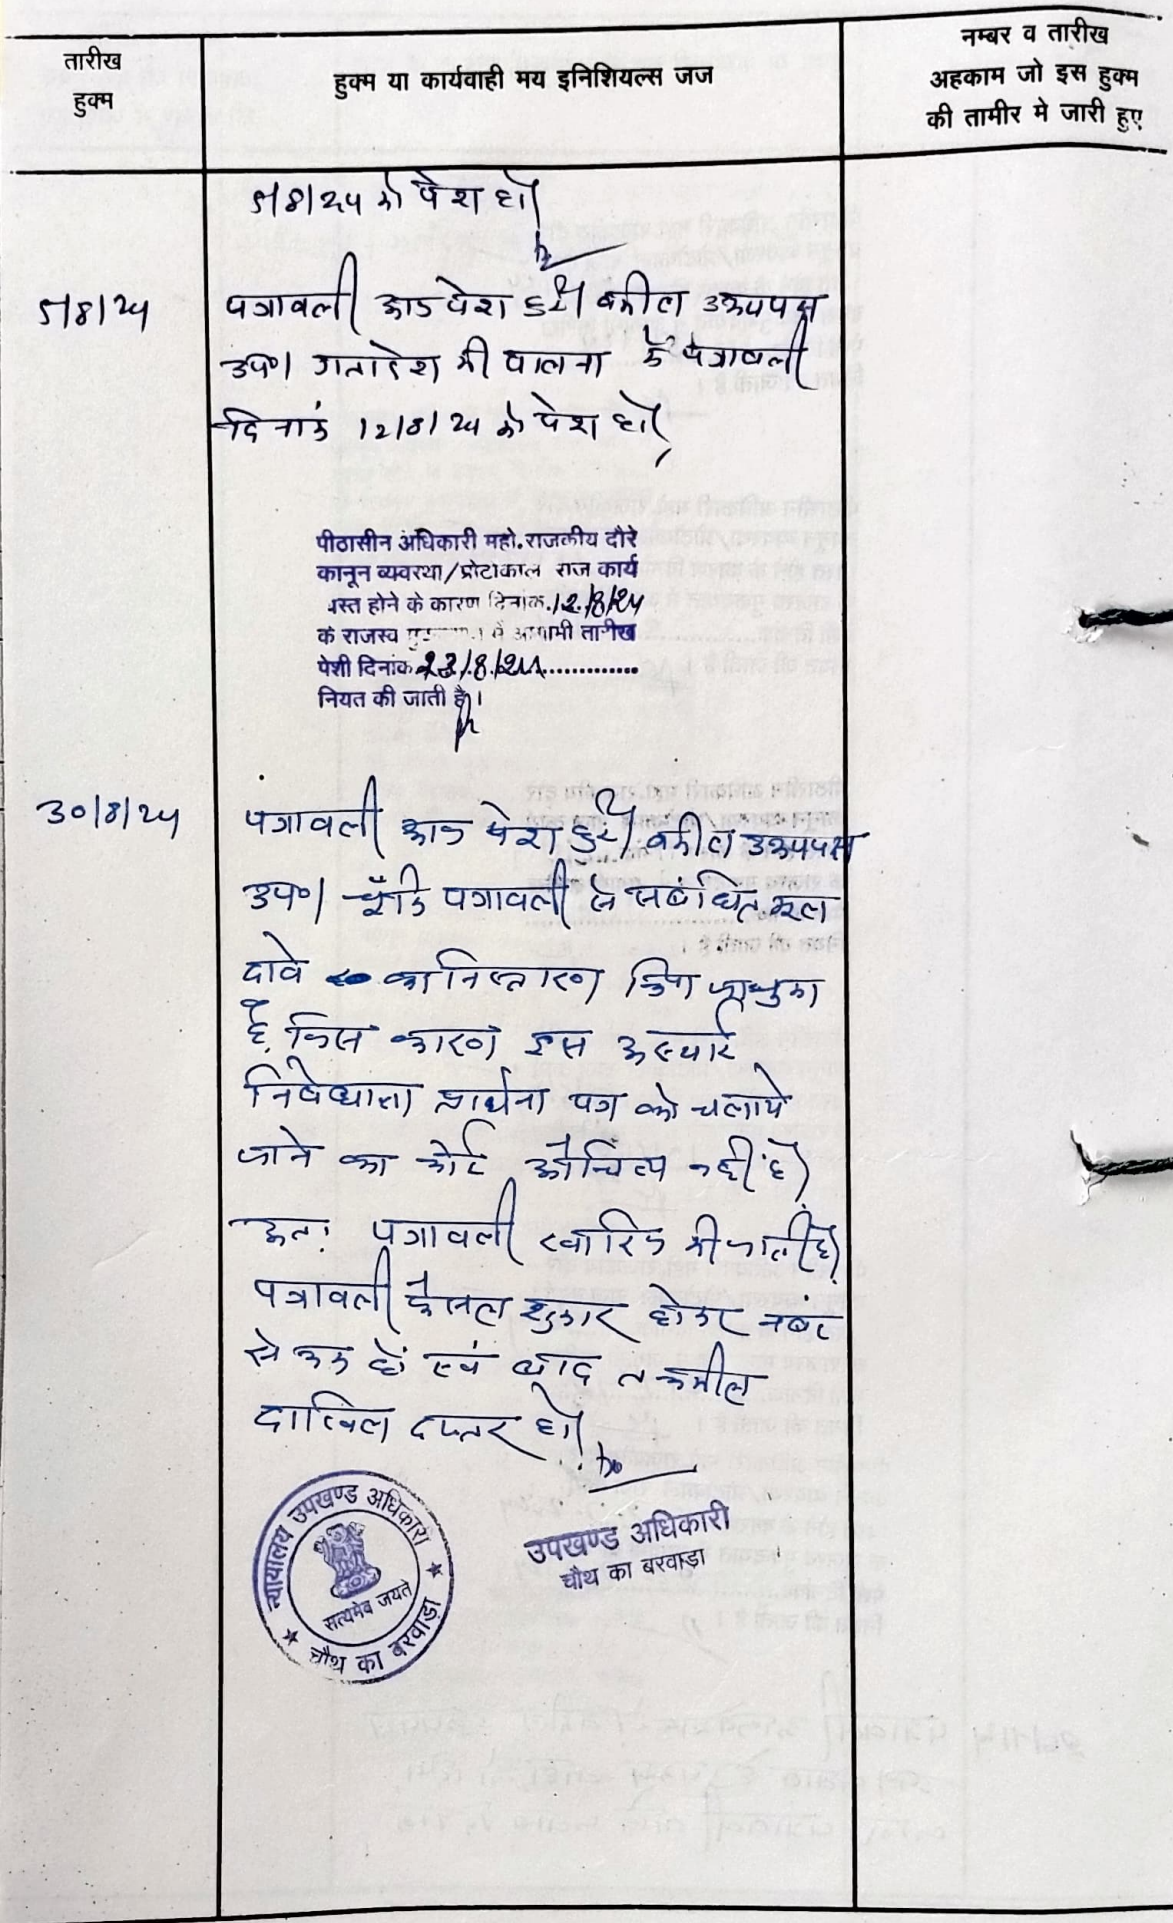 तारीख
हुक्म
हुक्म या कार्यवाही मय इनिशियल्स जज
नम्बर व तारीख
अहकाम जो इस हुक्म
की तामीर मे जारी हुए
5/8/24 को पेश हो।
5/8/24
पत्रावली आज पेश हुई। वकील उभयपक्ष
उप०। गतादेश की पालना में पत्रावली
दिनांक 12/8/24 को पेश हो।
पीठासीन अधिकारी महो. राजकीय दौरे
कानून व्यवस्था/प्रोटोकाल राज कार्य
व्यस्त होने के कारण दिनांक 12/8/24
के राजस्व में आगामी तारीख
पेशी दिनांक 23/8/24
नियत की जाती है।
30/8/24
पत्रावली आज पेश हुई। वकील उभयपक्ष
उप०। चूँकि पत्रावली से संबंधित मूल
दावे का निस्तारण किया जा चुका
है, जिस कारण इस अस्थाई
निषेधाज्ञा प्रार्थना पत्र को चलाये
जाने का कोई औचित्य नहीं है।
अतः पत्रावली खारिज की जाती है।
पत्रावली फैसल शुमार होकर नंबर
से कम हो एवं बाद तकमील
दाखिल दफ्तर हो।
उपखण्ड अधिकारी
चौथ का बरवाड़ा
न्यायालय उपखण्ड अधिकारी
सत्यमेव जयते
चौथ का बरवाड़ा